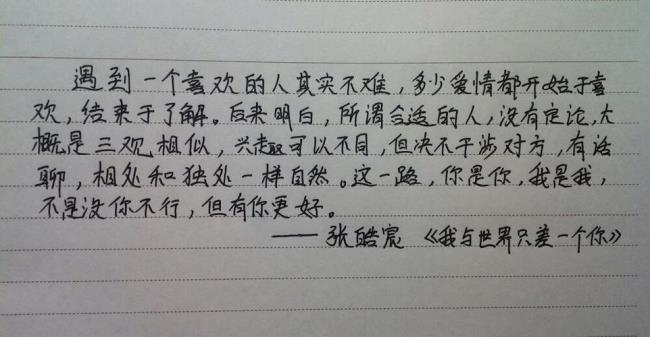 遇到一个喜欢的人其实不难，多少爱情都开始于喜
欢，结束于了解。后来明白，所谓合适的人，没有定论，大
概是三观相似，兴趣可以不同，但决不干涉对方，有话
聊，相处和独处一样自然。这一路，你是你，我是我，
不是没你不行，但有你更好。
—— 张皓宸 《我与世界只差一个你》